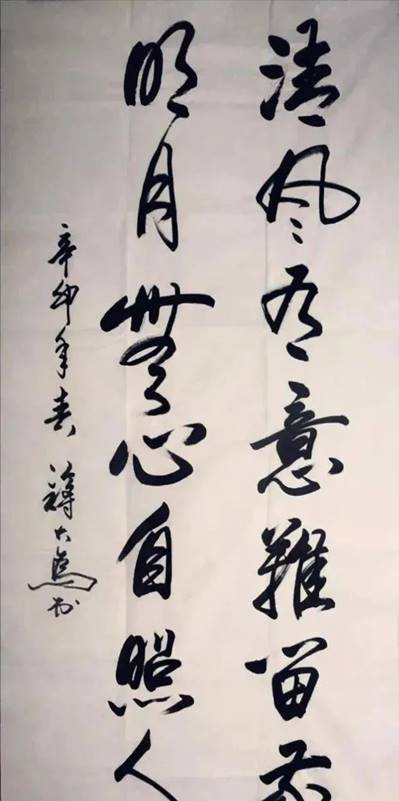 清风有意難留我
明月無心自照人
辛卯年春